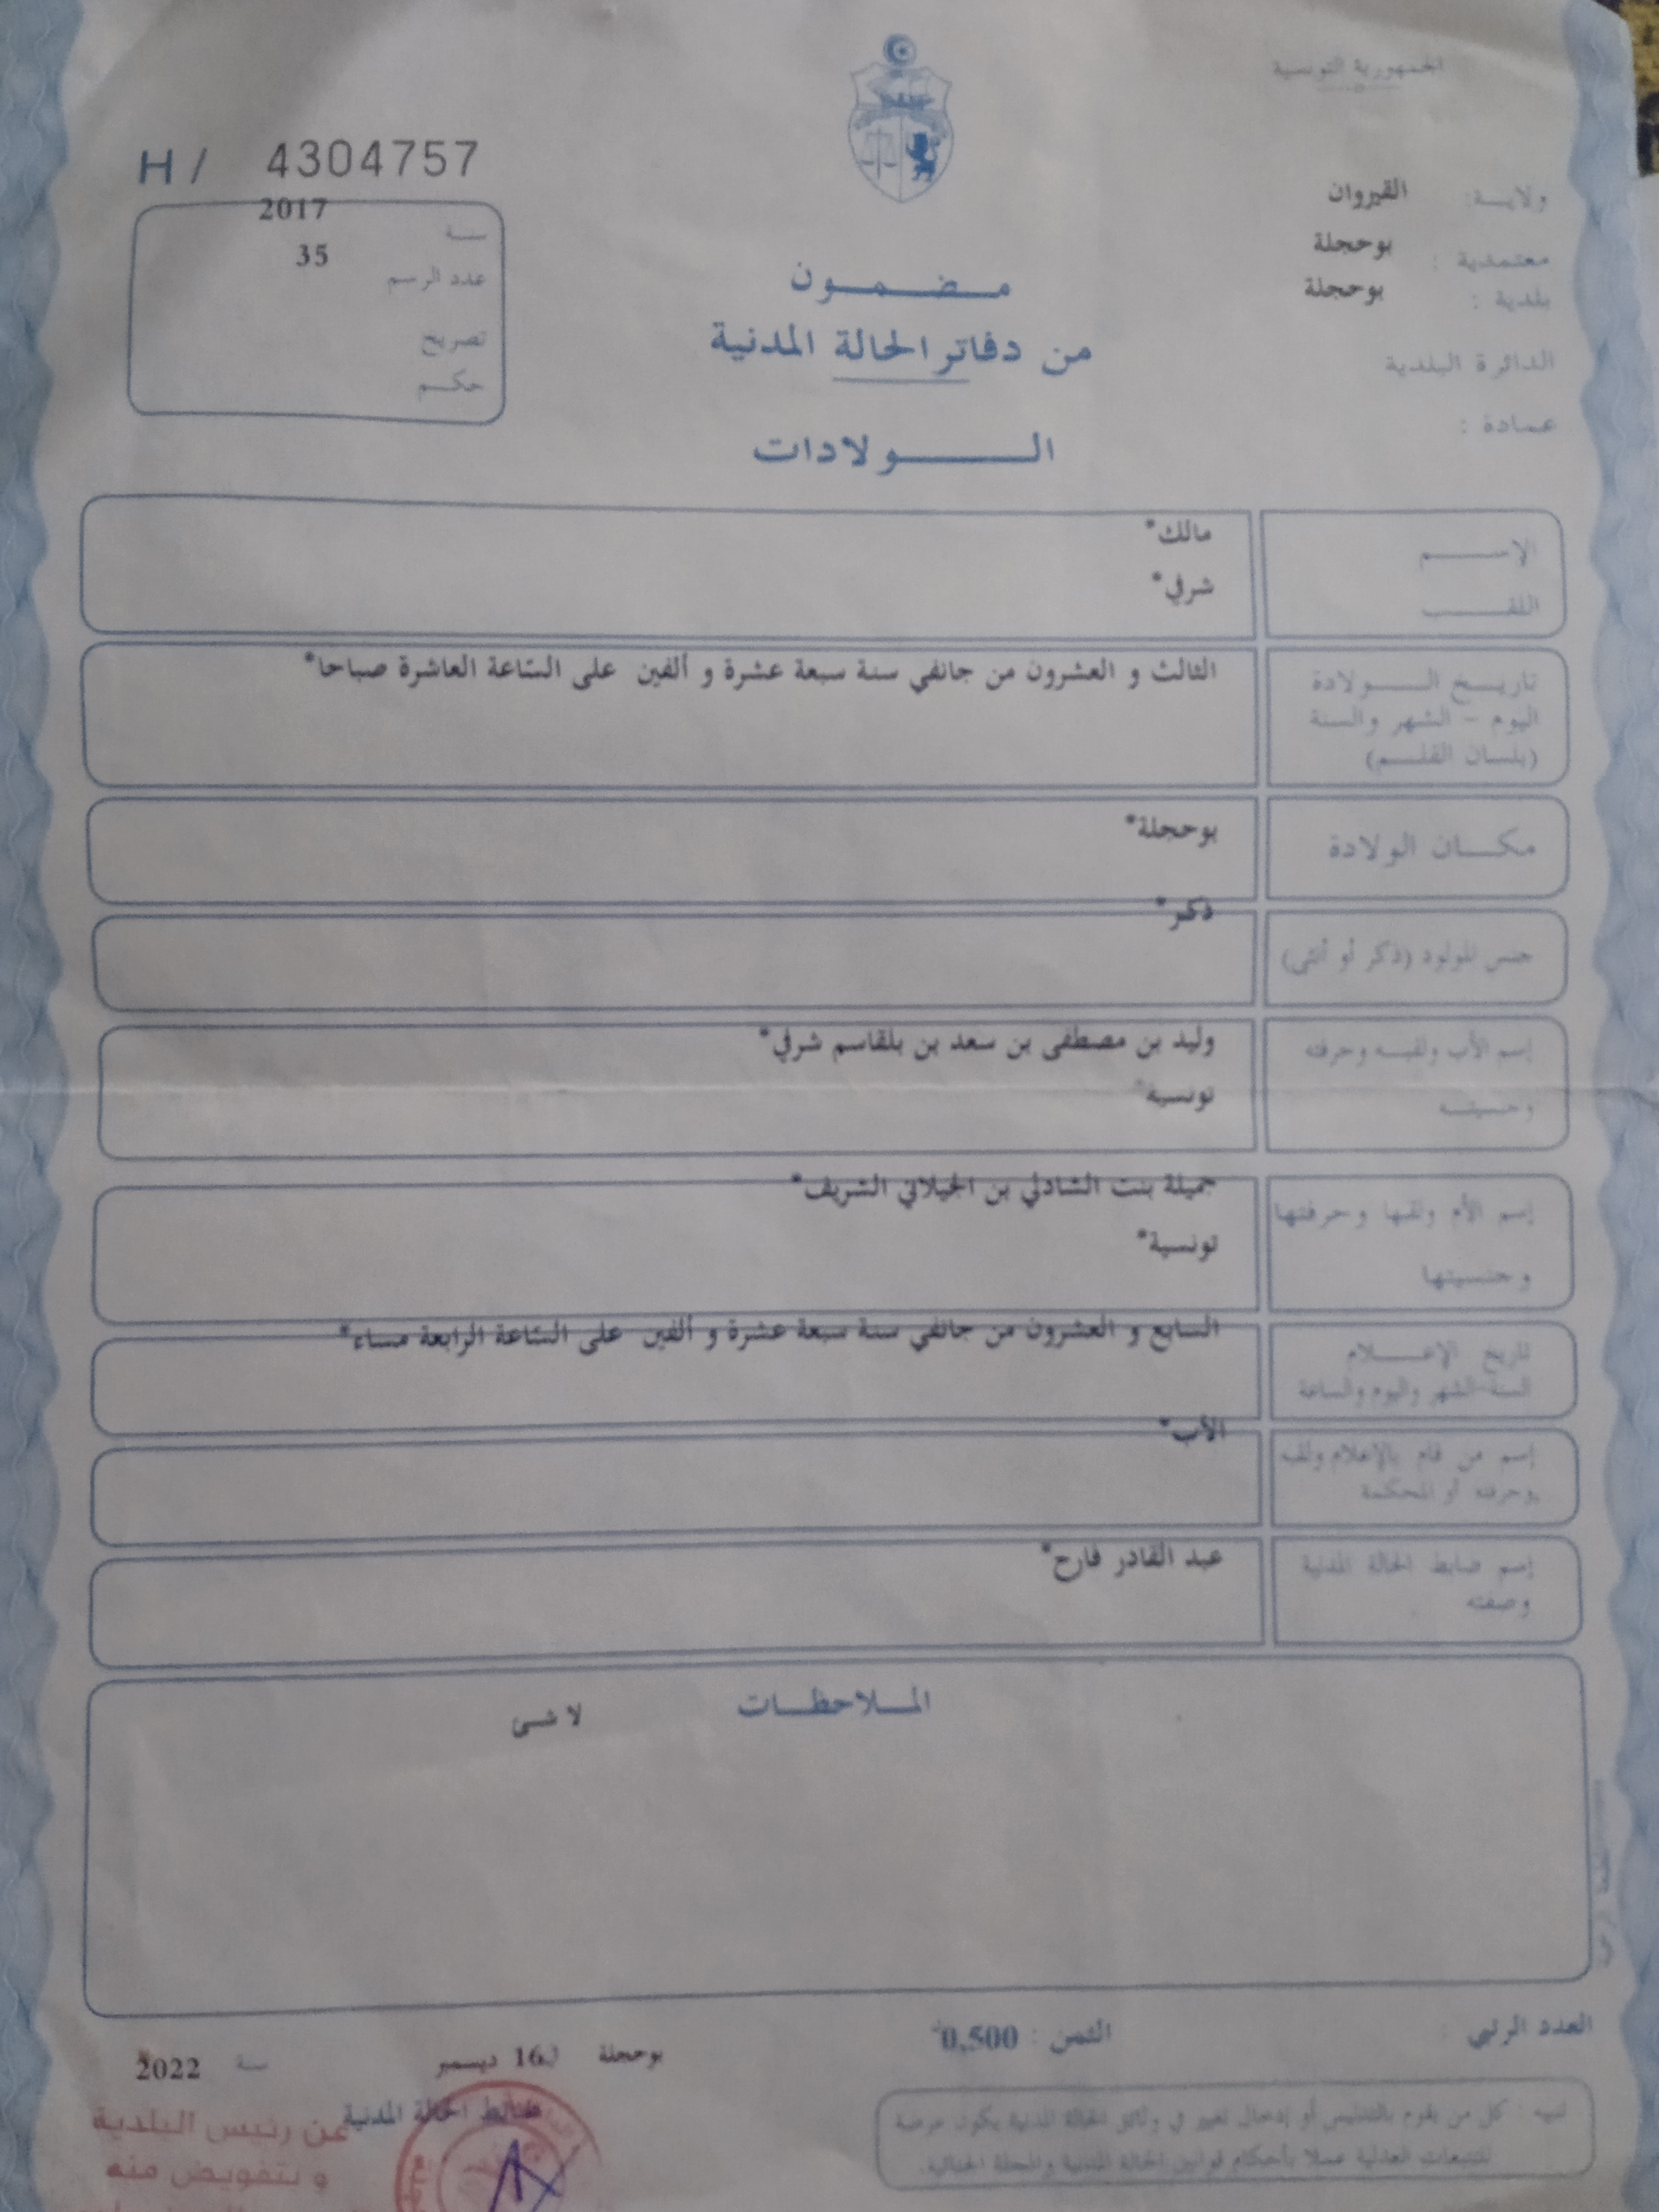 الجمهورية التونسية
H / 4304757
ولايـــة: القيروان
معتمدية : بوحجلة
بلدية : بوحجلة
الدائرة البلدية
عمادة :
سنـــة 2017
عدد الرسم 35
تصريح
حكـــم
مـــضـــمـــون
من دفاتر الحالة المدنية
الـــــــولادات
الإســـــم مالك*
اللقـــــب شرفي*
تاريـــخ الـــــولادة الثالث و العشرون من جانفي سنة سبعة عشرة و ألفين على السّاعة العاشرة صباحا*
اليوم - الشهر والسنة
(بلسان القلـــم)
مكـــان الولادة بوحجلة*
جنس المولود (ذكر أو أنثى) ذكر*
إسم الأب ولقبـــه وحرفته وليد بن مصطفى بن سعد بن بلقاسم شرفي*
وجنسيتـــه تونسية*
إسم الأم ولقبها وحرفتها جميلة بنت الشاذلي بن الجيلاني الشريف*
وجنسيتها تونسية*
تاريخ الإعـــــلام السابع و العشرون من جانفي سنة سبعة عشرة و ألفين على السّاعة الرابعة مساء*
السنة-الشهر واليوم والساعة
إسم من قام بالإعلام ولقبه الأب*
وحرفته أو المحكمة
إسم ضابط الحالة المدنية عبد القادر فارح*
وصفته
المـــلاحظـــات
لا شئ
العدد الرتبي :
الثمن : 0,500
بوحجلة 16 ديسمبر سنة 2022
ضابط الحالة المدنية
عن رئيس البلدية
و بتفويض منه
تنبيه : كل من يقوم بالتدليس أو إدخال تغيير في وثائق الحالة المدنية يكون عرضة
للتتبعات العدلية عملا بأحكام قوانين الحالة المدنية والمجلة الجنائية.